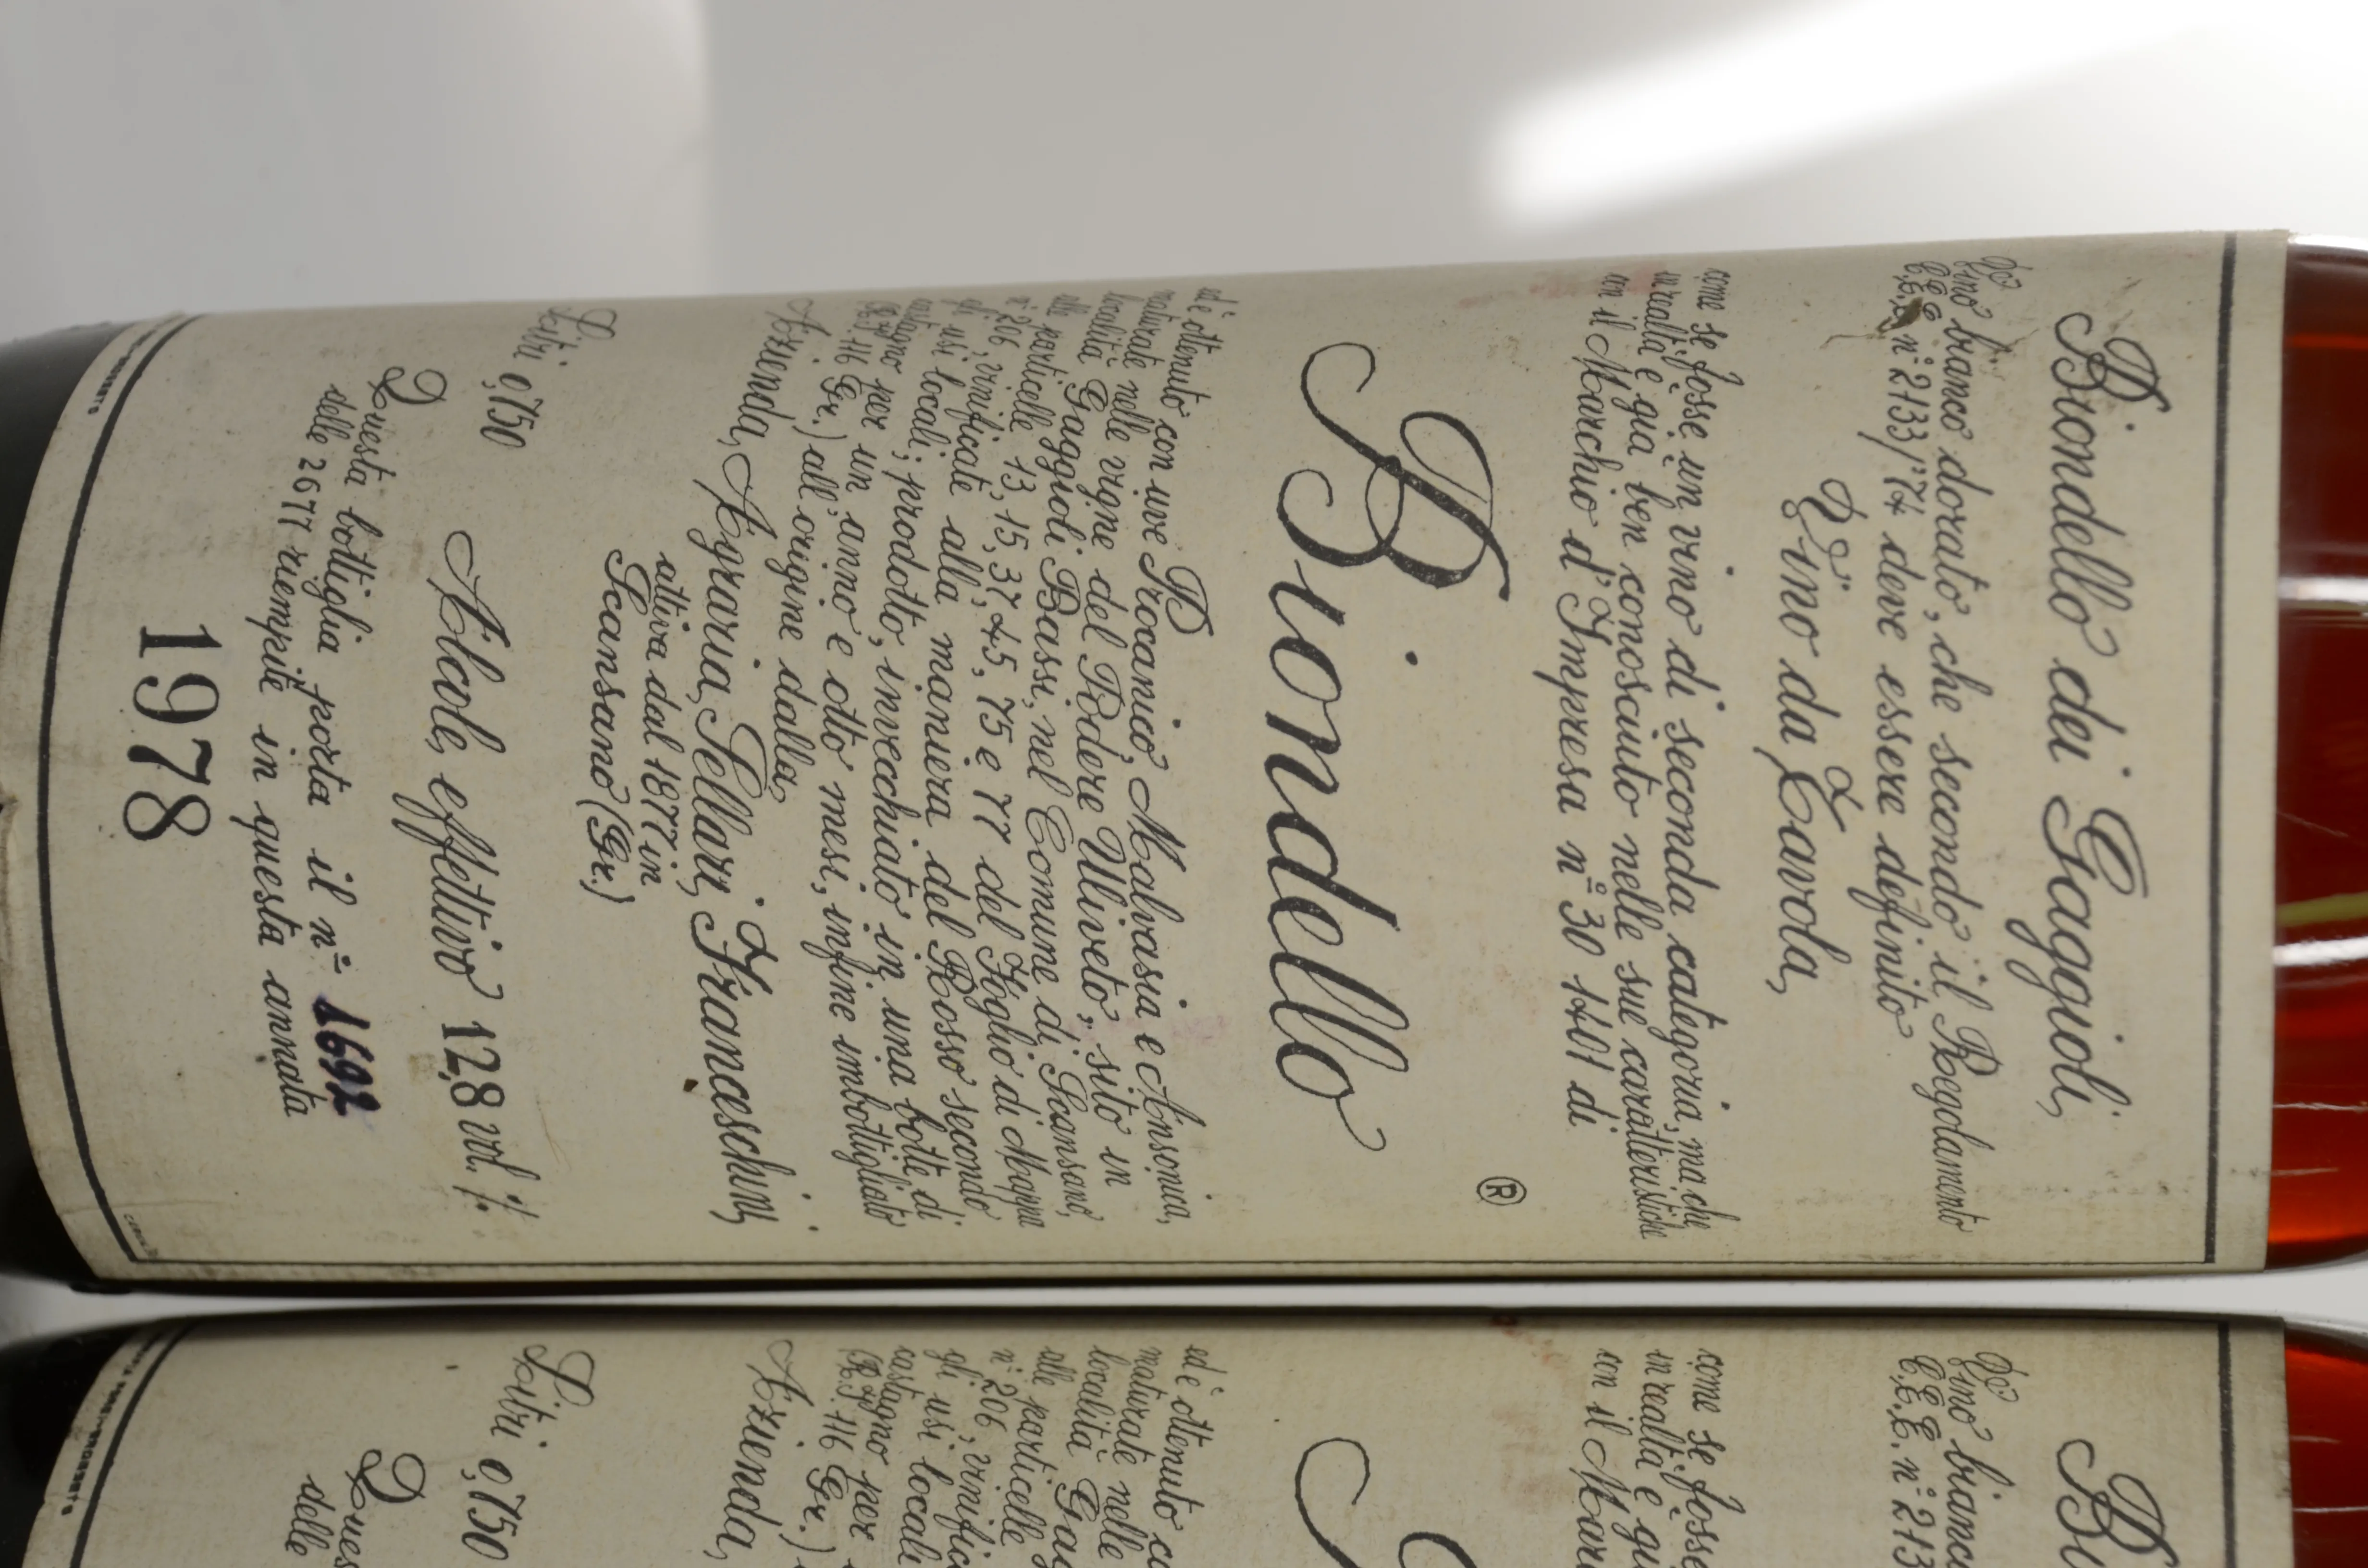 Biondello dei Gaggioli,
Vino bianco dorato, che secondo il Regolamento
C.E.E. n° 2133/'74 deve essere definito
Vino da Tavola,
come se fosse un vino di seconda categoria, ma che
in realtà è già ben conosciuto nelle sue caratteristiche
con il Marchio d'Impresa n° 30 1401 di
Biondello
®
ed è ottenuto con uve Procanico, Malvasia e Ansonia,
maturate nelle vigne del Podere Uliveto, sito in
località Gaggioli Bassi, nel Comune di Scansano,
alle particelle 13, 15, 37, 45, 75 e 77 del Foglio di Mappa
n° 206, vinificate alla maniera del Rosso secondo
gli usi locali; prodotto, invecchiato in una botte di
castagno per un anno e otto mesi, infine imbottigliato
116 Gr.) all'origine dalla,
Azienda, Agraria, Sellari, Franceschini,
attiva dal 1877 in
Scansano (Gr.)
Litri 0,750
Alcole effettivo 12,8 vol. %
Questa bottiglia porta il n° 1692
delle 2677 riempite in questa annata
1978
Bi
Vino bianco
C.E.E. n° 213
come se fosse
in realtà è già
con il Mar
ed è ottenuto c
maturate nelle
località Gag
alle particelle
n° 206, vinific
gli usi locali
castagno per
116 Gr.)
Azienda,
Litri 0,750
Ques
delle